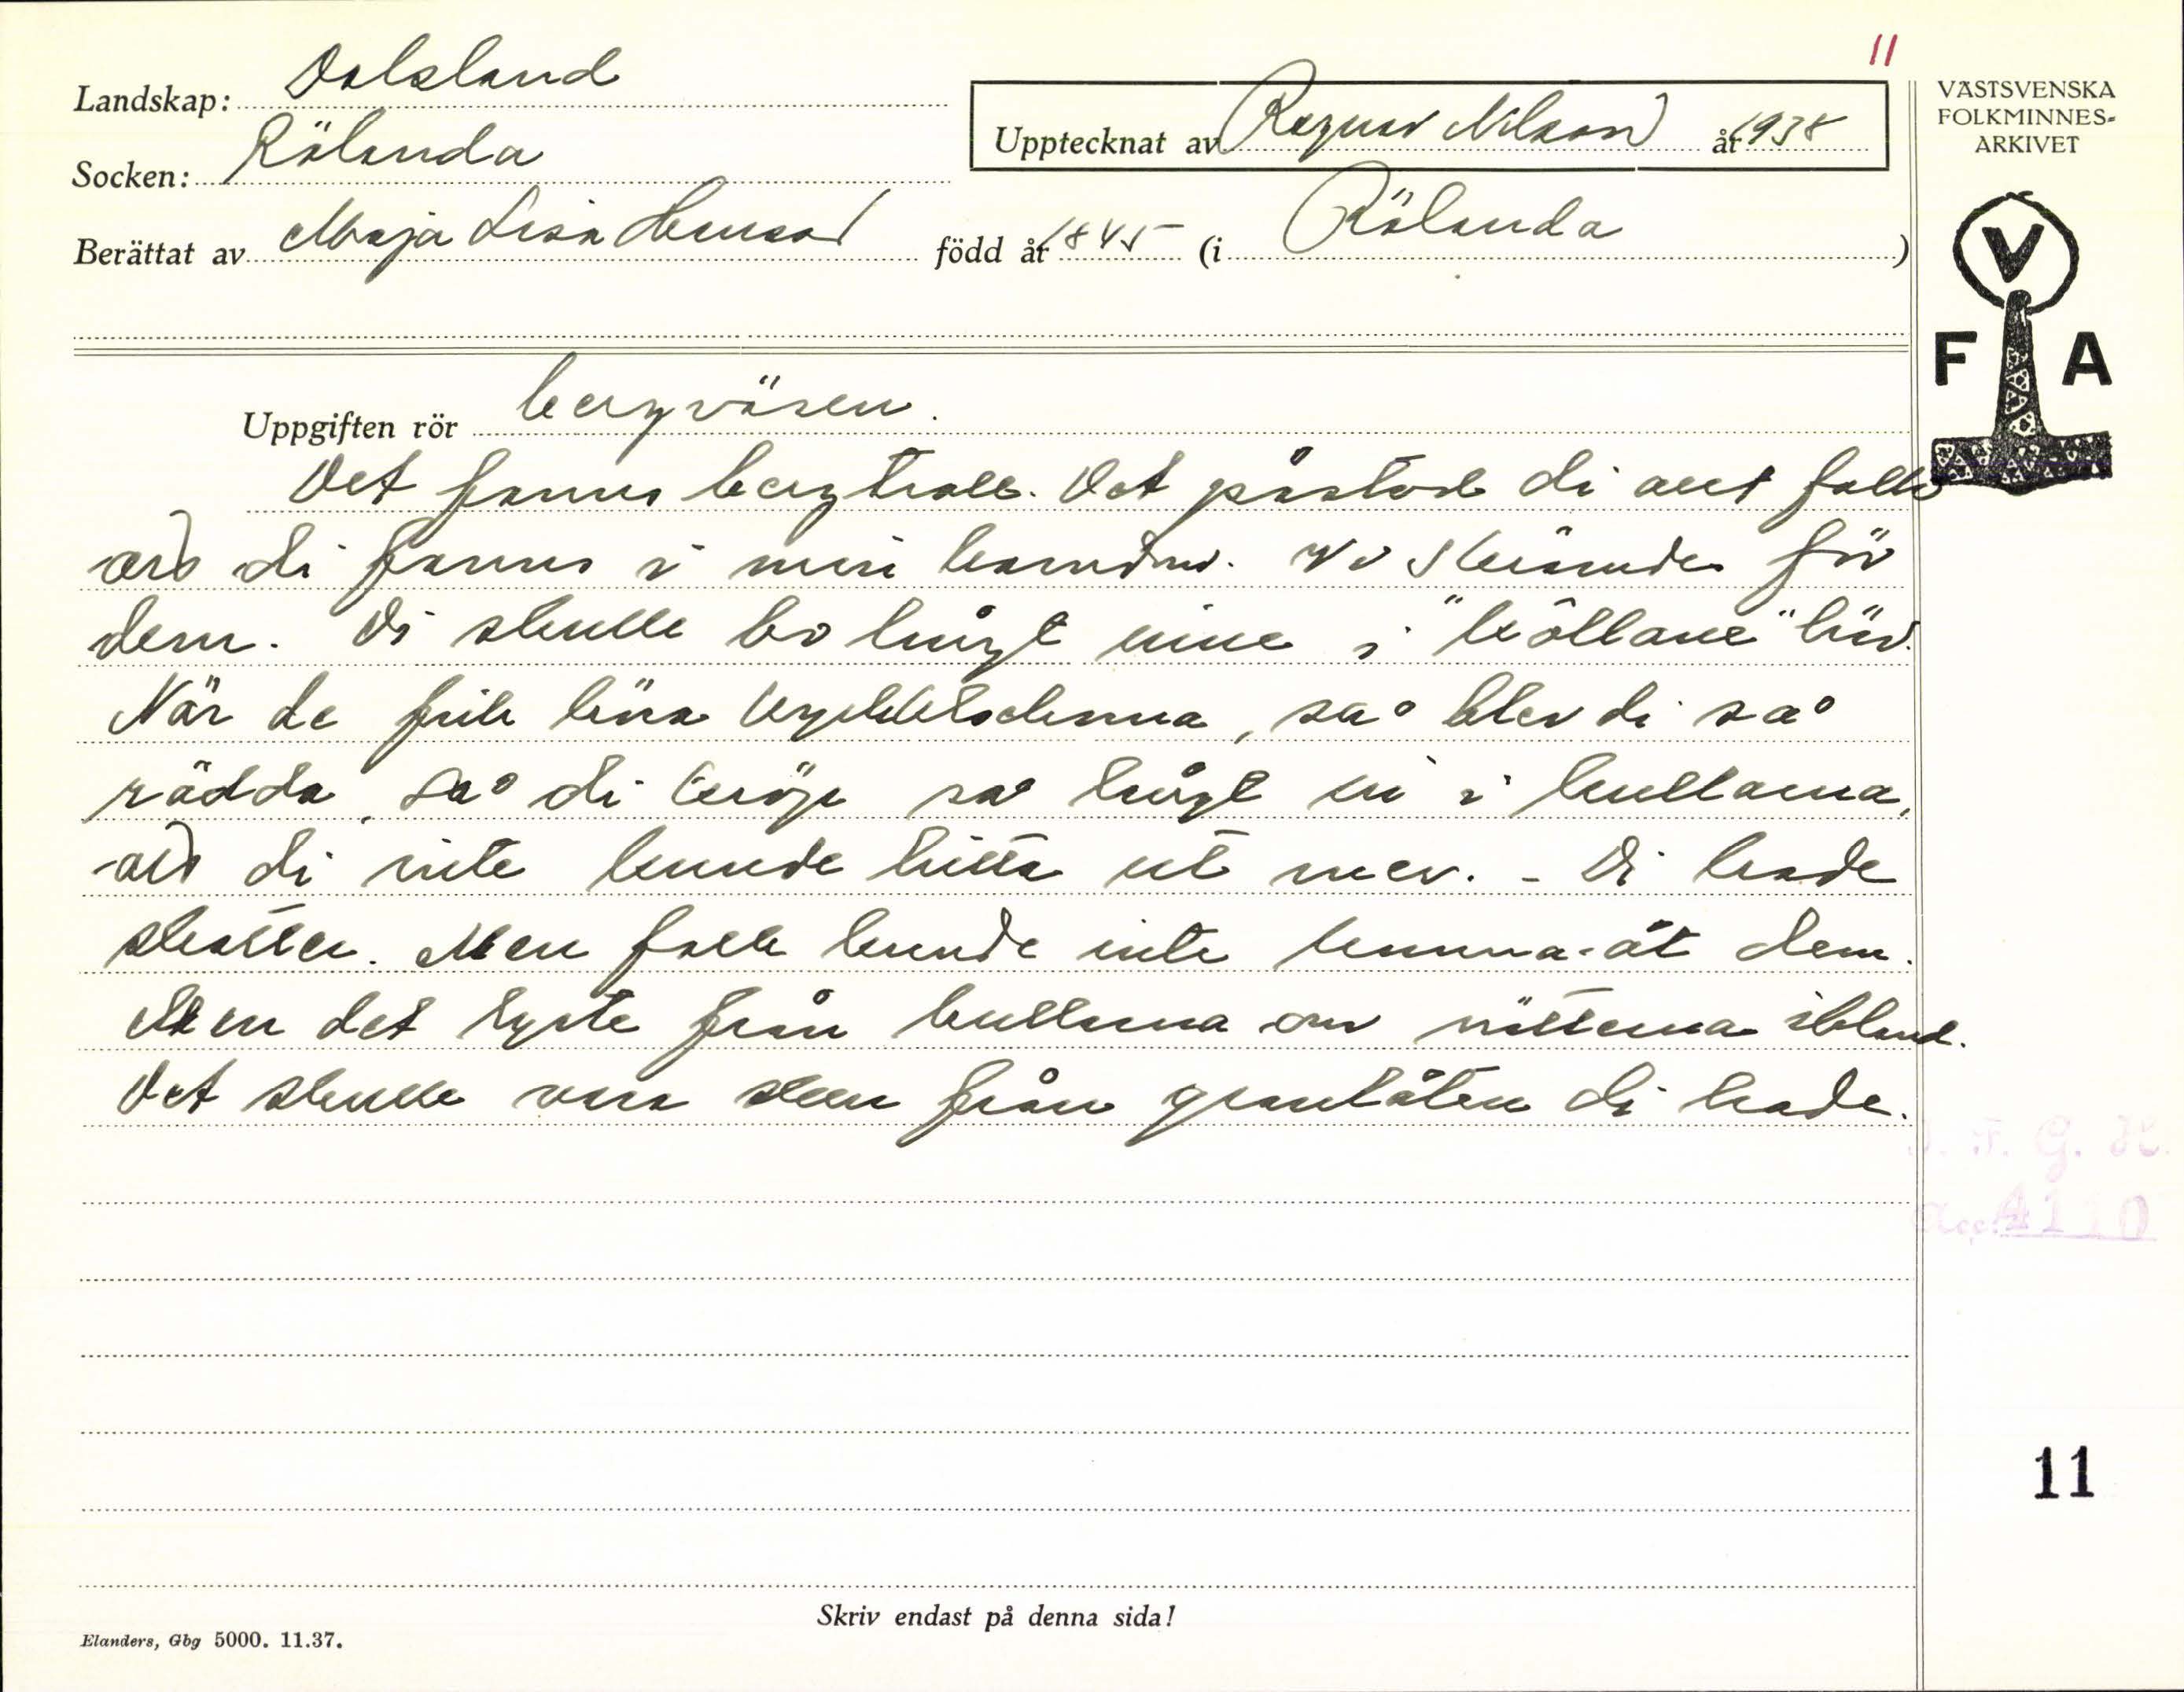 11
Landskap: Dalsland
Upptecknat av Ragnar Nilsson år 1938
Socken: Rölanda
Berättat av Maja Lisa Hansson född år 1845 (i Rölanda)
VÄSTSVENSKA
FOLKMINNES-
ARKIVET
V
F A
Uppgiften rör bergväsen.
Det fanns bergtroll. Det påstod di allt folk
att di fanns i min barndom. Vi skrämdes för
dem. Di skulle bo långt inne i "kôllane" här.
När de fick höra kyrkklockorna, så blev di så
rädda, så di kröp så långt in i kullarna,
att di inte kunde hitta ut mer. - Di hade
skatter. Men folk kunde inte komma åt dem.
Men det lyste från kullarna om nätterna ibland.
Det skulle vara sken från grantåten di hade.
J. F. G. H.
Acc. 4110
11
Skriv endast på denna sida!
Elanders, Gbg 5000. 11.37.